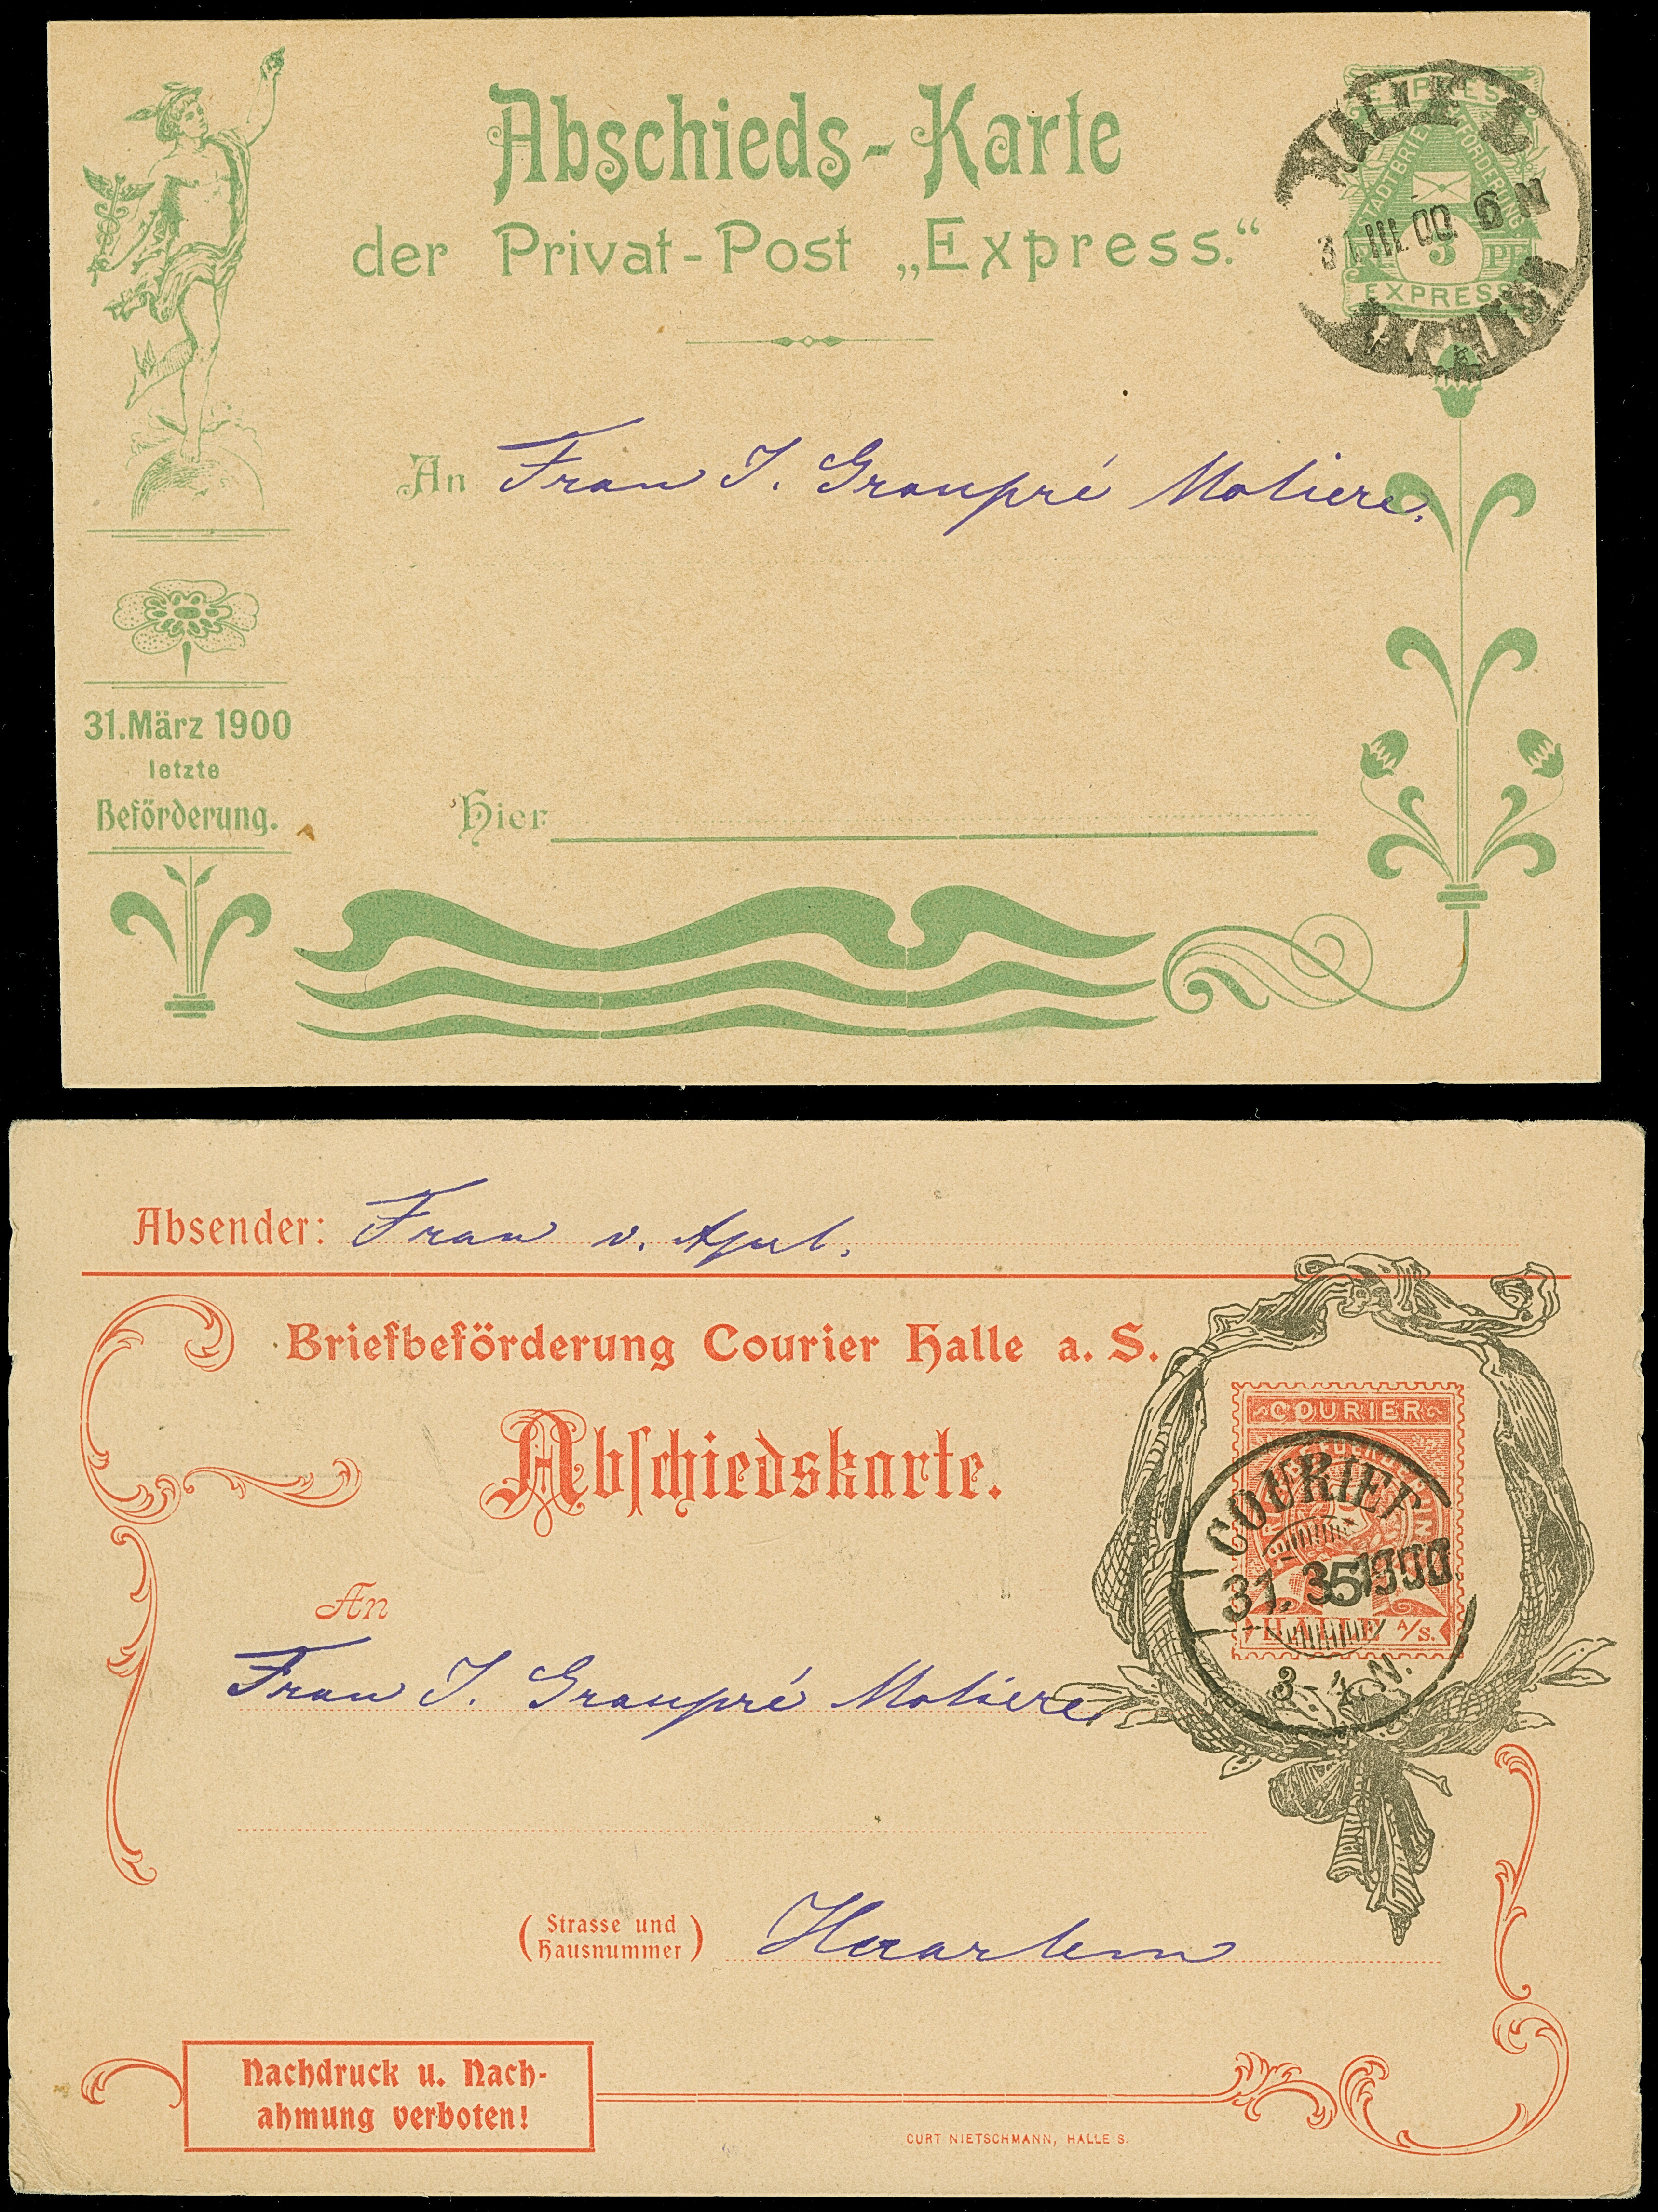 Abschieds-Karte
der Privat-Post „Express.“
EXPRESS
STADTBRIEF BEFÖRDERUNG
3 PF
EXPRESS
HALLE S.
31.III.00. 6 N
EXPRESS
An Frau I. Graupré Moliere.
31. März 1900
letzte
Beförderung.
Hier
Absender: Frau v.
Briefbeförderung Courier Halle a. S.
Abschiedskarte.
COURIER
HALLE A/S.
COURIER
31. 3 1900
3-4 N.
An
Frau I. Graupré Moliere
(Strasse und
Hausnummer) Haarlem
Nachdruck u. Nach-
ahmung verboten!
CURT NIETSCHMANN, HALLE S.